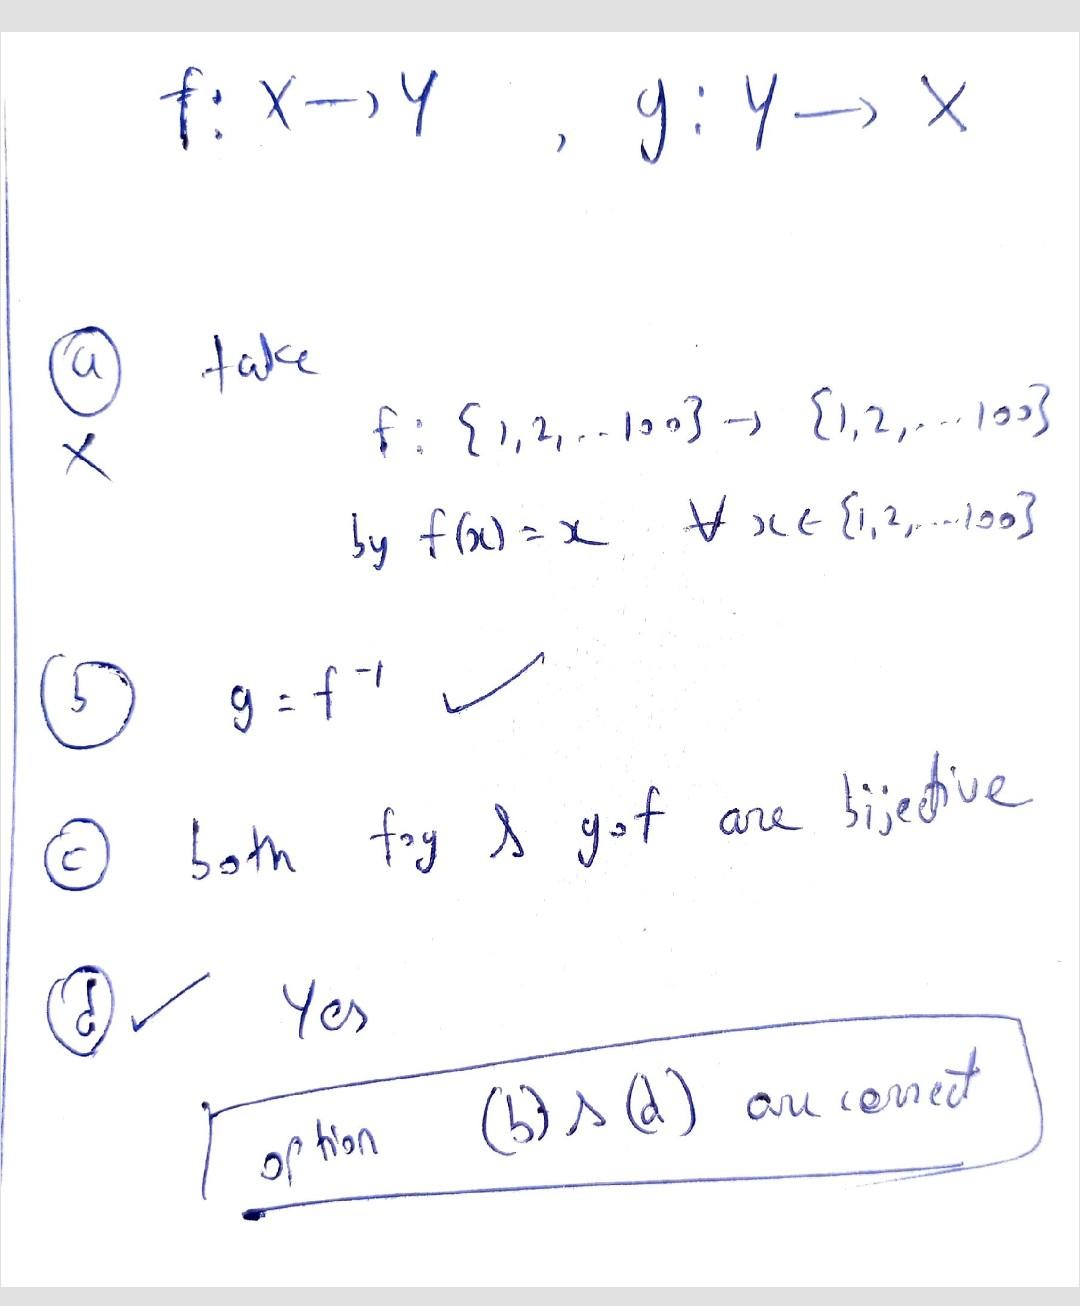 f: X→Y , g: Y→X
ⓐ take
f: {1,2,...100} → {1,2,...100}
X
by f(x) = x ∀ x ∈ {1,2,...100}
ⓑ g = f⁻¹ ✓
ⓒ both fog & gof are bijective
ⓓ ✓ Yes
option (b) & (d) are correct